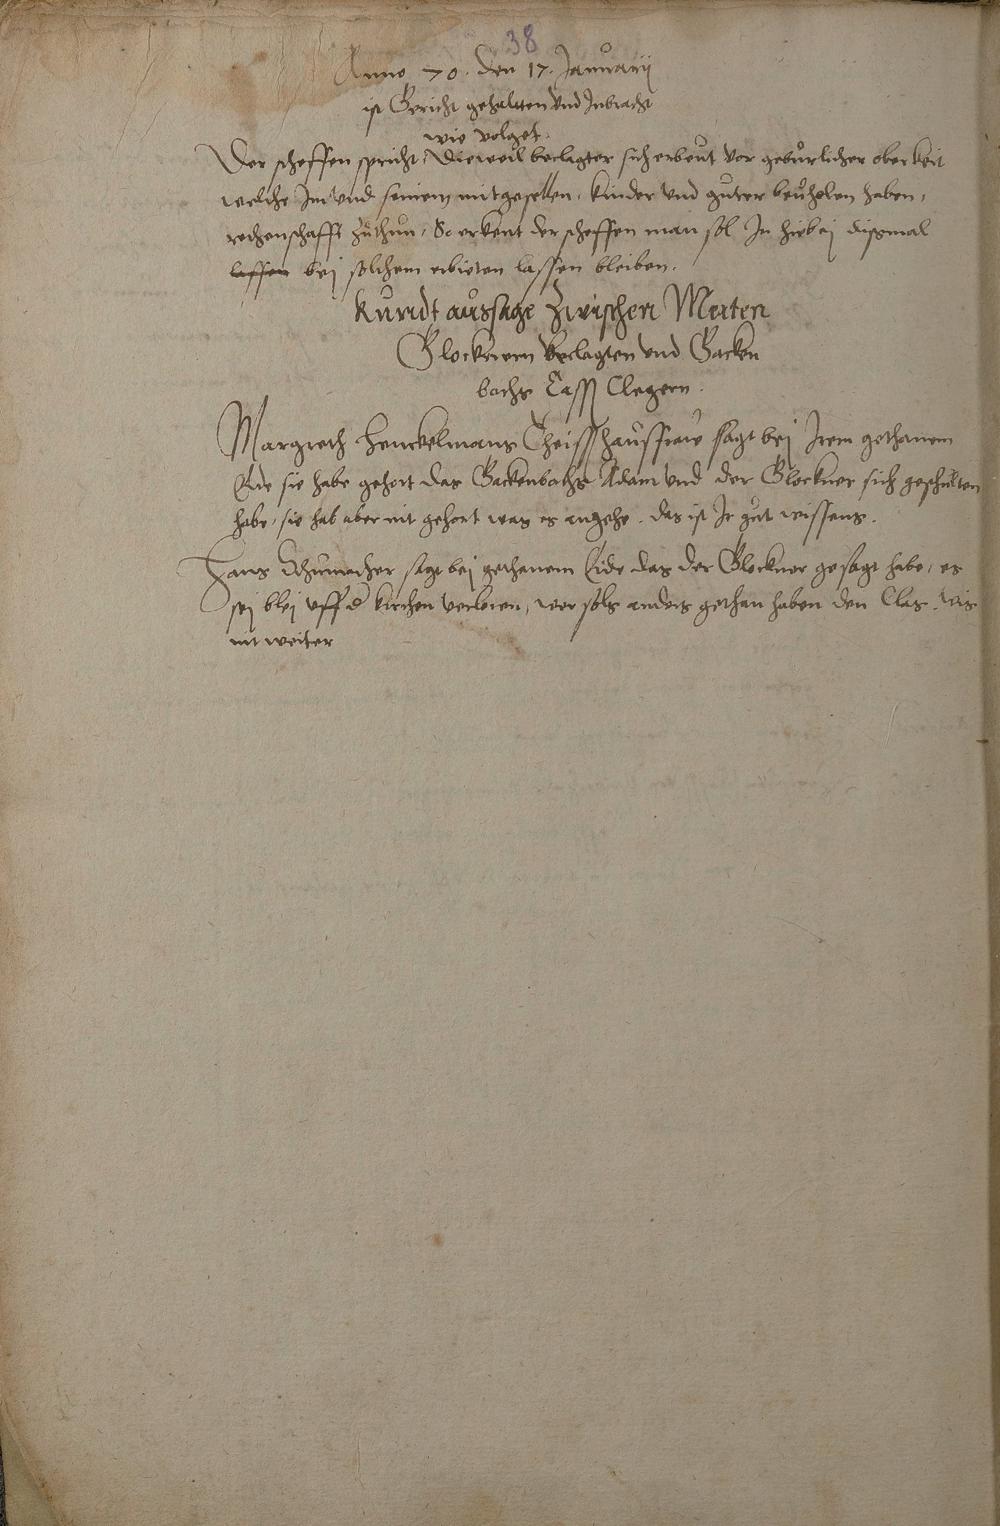 38
Anno 70. den 17. Januarij
ist Gericht gehaltten und Inbracht
wie volget.
Der scheffen spricht, Dieweil beclagter sich erbeut vor geburlicher oberkeit
welche Im und seinem mitgesellen, kinder und guter bevholen haben,
rechenschafft zuthun, So erkent der scheffen man sol In hiebej dissmal
lassen bej solchem erbieten lassen bleiben.
Kundt aussage zwischen Merten
Glocknern Beclagten und Gacken
bachs Clegern.
Margreth Henckelmans Theiss haussfraw sagt bej Irem gethanem
Eide sie habe gehort das Gackenbachs Adam und der Glockner sich geschulten
habe, sie hab aber nit gehort was es angehe. das ist Ir gut wissens.
Hans Schumacher sagt bej gethanem Eide das der Glockner gesagt habe, es
sej blej uff d kirchen verloren, wer sols anders gethan haben den Clas. Wis
nit weiter